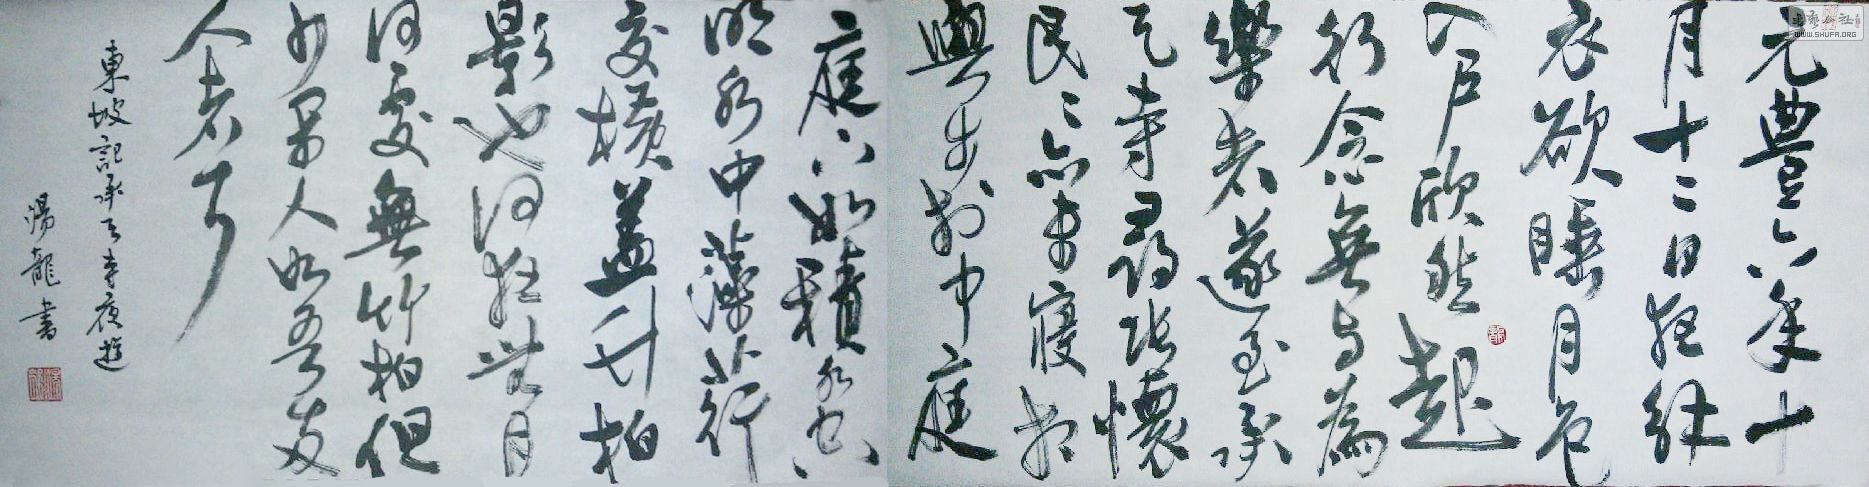 元豐六年十
月十二日夜解
衣欲睡月色
入戶欣然起
行念無與為
樂者遂至承
天寺尋張懷
民〻亦未寢相
與步於中庭
庭下如積水空
明水中藻荇
交橫蓋竹柏
影也何夜無月
何處無竹柏但
少閑人如吾兩
人者耳
東坡記承天寺夜遊
湯龍書
WWW.SHUFA.ORG